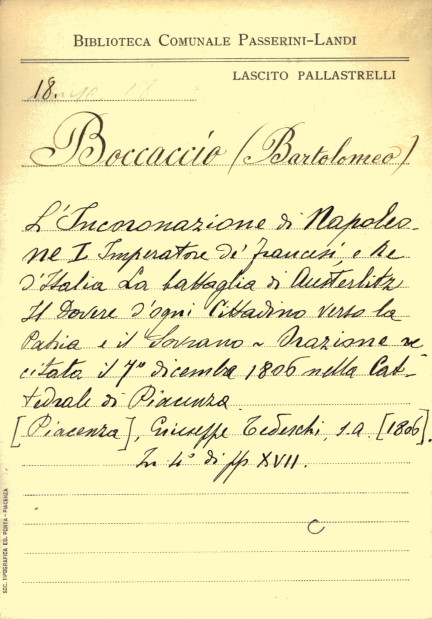 BIBLIOTECA COMUNALE PASSERINI-LANDI
LASCITO PALLASTRELLI
18.
Boccaccio (Bartolomeo)
L'Incoronazione di Napoleo-
ne I Imperatore de' francesi, e Re
d'Italia La battaglia di Austerlitz
Il Dovere d'ogni Cittadino verso la
Patria e il Sovrano ~ Orazione re
citata il 7º dicembre 1806 nella Cat-
tedrale di Piacenza.
[Piacenza], Giuseppe Tedeschi, s.a. [1806].
In 4° di pp XVII.
C
SOC. TIPOGRAFICA ED. PORTA - PIACENZA